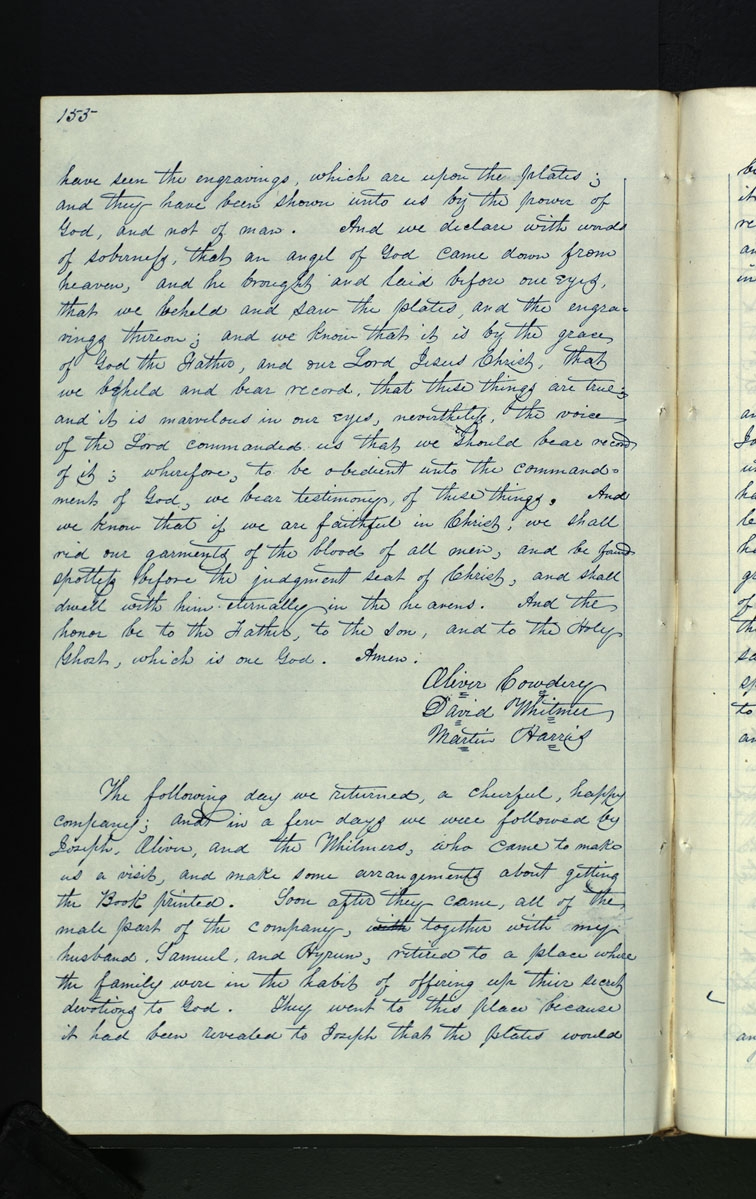 155
have seen the engravings, which are upon the plates;
and they have been shown unto us by the power of
God, and not of man. And we declare with words
of soberness, that an angel of God came down from
heaven, and he brought and laid before our eyes,
that we beheld and saw the plates, and the engra-
vings thereon; and we know that it is by the grace
of God the Father, and our Lord Jesus Christ, that
we beheld and bear record, that these things are true;
and it is marvelous in our eyes, nevertheless, the voice
of the Lord commanded us that we should bear record
of it; wherefore, to be obedient unto the command-
ments of God, we bear testimony, of these things. And
we know that if we are faithful in Christ, we shall
rid our garments of the blood of all men, and be found
spotless before the judgment seat of Christ, and shall
dwell with him eternally in the heavens. And the
honor be to the Father, to the son, and to the Holy
Ghost, which is one God. Amen.
Oliver Cowdery
David Whitmer
Martin Harris
The following day we returned, a cheerful, happy
company; and in a few days we were followed by
Joseph, Oliver, and the Whitmers, who came to make
us a visit, and make some arrangements about getting
the Book printed. Soon after they came, all of the
male part of the company, with together with my
husband, Samuel, and Hyrum, retired to a place where
the family were in the habit of offering up their secret
devotions to God. They went to this place because
it had been revealed to Joseph that the plates would
be
it
re
an
in
an
Jo
ha
be
ha
of
th
sp
to
an
an